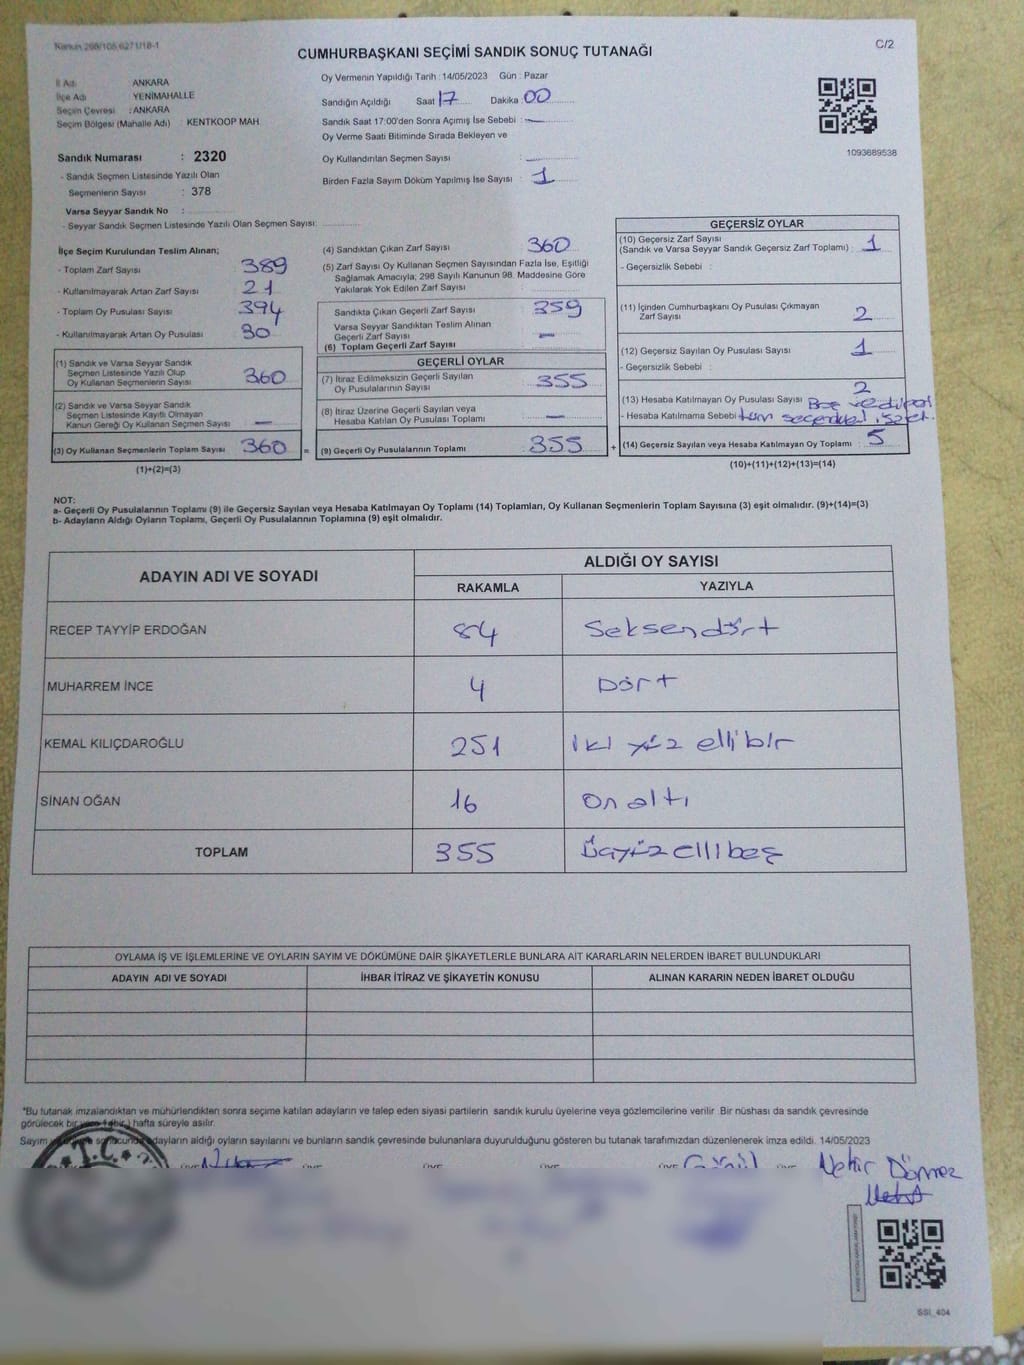 Kanun 298/105,6271/18-1
C/2
CUMHURBAŞKANI SEÇİMİ SANDIK SONUÇ TUTANAĞI
İl Adı : ANKARA
İlçe Adı : YENİMAHALLE
Seçim Çevresi : ANKARA
Seçim Bölgesi (Mahalle Adı) : KENTKOOP MAH.
Oy Vermenin Yapıldığı Tarih : 14/05/2023 Gün : Pazar
Sandığın Açıldığı Saat 17 Dakika : 00
Sandık Saat 17:00'den Sonra Açımış İse Sebebi : —
Oy Verme Saati Bitiminde Sırada Bekleyen ve
Oy Kullandırılan Seçmen Sayısı : —
Birden Fazla Sayım Döküm Yapılmış İse Sayısı : 1
1093689538
Sandık Numarası : 2320
- Sandık Seçmen Listesinde Yazılı Olan
Seçmenlerin Sayısı : 378
Varsa Seyyar Sandık No :
- Seyyar Sandık Seçmen Listesinde Yazılı Olan Seçmen Sayısı:
İlçe Seçim Kurulundan Teslim Alınan;
- Toplam Zarf Sayısı 389
- Kullanılmayarak Artan Zarf Sayısı 21
- Toplam Oy Pusulası Sayısı 394
- Kullanılmayarak Artan Oy Pusulası 30
(1) Sandık ve Varsa Seyyar Sandık
Seçmen Listesinde Yazılı Olup
Oy Kullanan Seçmenlerin Sayısı 360
(2) Sandık ve Varsa Seyyar Sandık
Seçmen Listesinde Kayıtlı Olmayan
Kanun Gereği Oy Kullanan Seçmen Sayısı —
(3) Oy Kullanan Seçmenlerin Toplam Sayısı 360 =
(1)+(2)=(3)
(4) Sandıktan Çıkan Zarf Sayısı 360
(5) Zarf Sayısı Oy Kullanan Seçmen Sayısından Fazla İse, Eşitliği
Sağlamak Amacıyla; 298 Sayılı Kanunun 98. Maddesine Göre
Yakılarak Yok Edilen Zarf Sayısı :
Sandıkta Çıkan Geçerli Zarf Sayısı 359
Varsa Seyyar Sandıktan Teslim Alınan
Geçerli Zarf Sayısı —
(6) Toplam Geçerli Zarf Sayısı
GEÇERLİ OYLAR
(7) İtiraz Edilmeksizin Geçerli Sayılan
Oy Pusulalarının Sayısı 355
(8) İtiraz Üzerine Geçerli Sayılan veya
Hesaba Katılan Oy Pusulası Toplamı —
(9) Geçerli Oy Pusulalarının Toplamı 355 +
GEÇERSİZ OYLAR
(10) Geçersiz Zarf Sayısı
(Sandık ve Varsa Seyyar Sandık Geçersiz Zarf Toplamı) : 1
- Geçersizlik Sebebi :
(11) İçinden Cumhurbaşkanı Oy Pusulası Çıkmayan
Zarf Sayısı 2
(12) Geçersiz Sayılan Oy Pusulası Sayısı 1
- Geçersizlik Sebebi :
2
(13) Hesaba Katılmayan Oy Pusulası Sayısı Boş
- Hesaba Katılmama Sebebi tüm
(14) Geçersiz Sayılan veya Hesaba Katılmayan Oy Toplamı : 5
(10)+(11)+(12)+(13)=(14)
NOT:
a- Geçerli Oy Pusulalarının Toplamı (9) ile Geçersiz Sayılan veya Hesaba Katılmayan Oy Toplamı (14) Toplamları, Oy Kullanan Seçmenlerin Toplam Sayısına (3) eşit olmalıdır. (9)+(14)=(3)
b- Adayların Aldığı Oyların Toplamı, Geçerli Oy Pusulalarının Toplamına (9) eşit olmalıdır.
ADAYIN ADI VE SOYADI ALDIĞI OY SAYISI
RAKAMLA YAZIYLA
RECEP TAYYİP ERDOĞAN 84 Seksendört
MUHARREM İNCE 4 Dört
KEMAL KILIÇDAROĞLU 251 İki yüz ellibir
SİNAN OĞAN 16 On altı
TOPLAM 355 Üçyüzellibeş
OYLAMA İŞ VE İŞLEMLERİNE VE OYLARIN SAYIM VE DÖKÜMÜNE DAİR ŞİKAYETLERLE BUNLARA AİT KARARLARIN NELERDEN İBARET BULUNDUKLARI
ADAYIN ADI VE SOYADI İHBAR İTİRAZ VE ŞİKAYETİN KONUSU ALINAN KARARIN NEDEN İBARET OLDUĞU
*Bu tutanak imzalandıktan ve mühürlendikten sonra seçime katılan adayların ve talep eden siyasi partilerin sandık kurulu üyelerine veya gözlemcilerine verilir. Bir nüshası da sandık çevresinde
görülecek bir yere 1 (bir) hafta süreyle asılır.
Sayım ve döküm sonucunda adayların aldığı oyların sayılarını ve bunların sandık çevresinde bulunanlara duyurulduğunu gösteren bu tutanak tarafımızdan düzenlenerek imza edildi. 14/05/2023
T.C.
Gönül
Nehir Dönmez
SSI_404